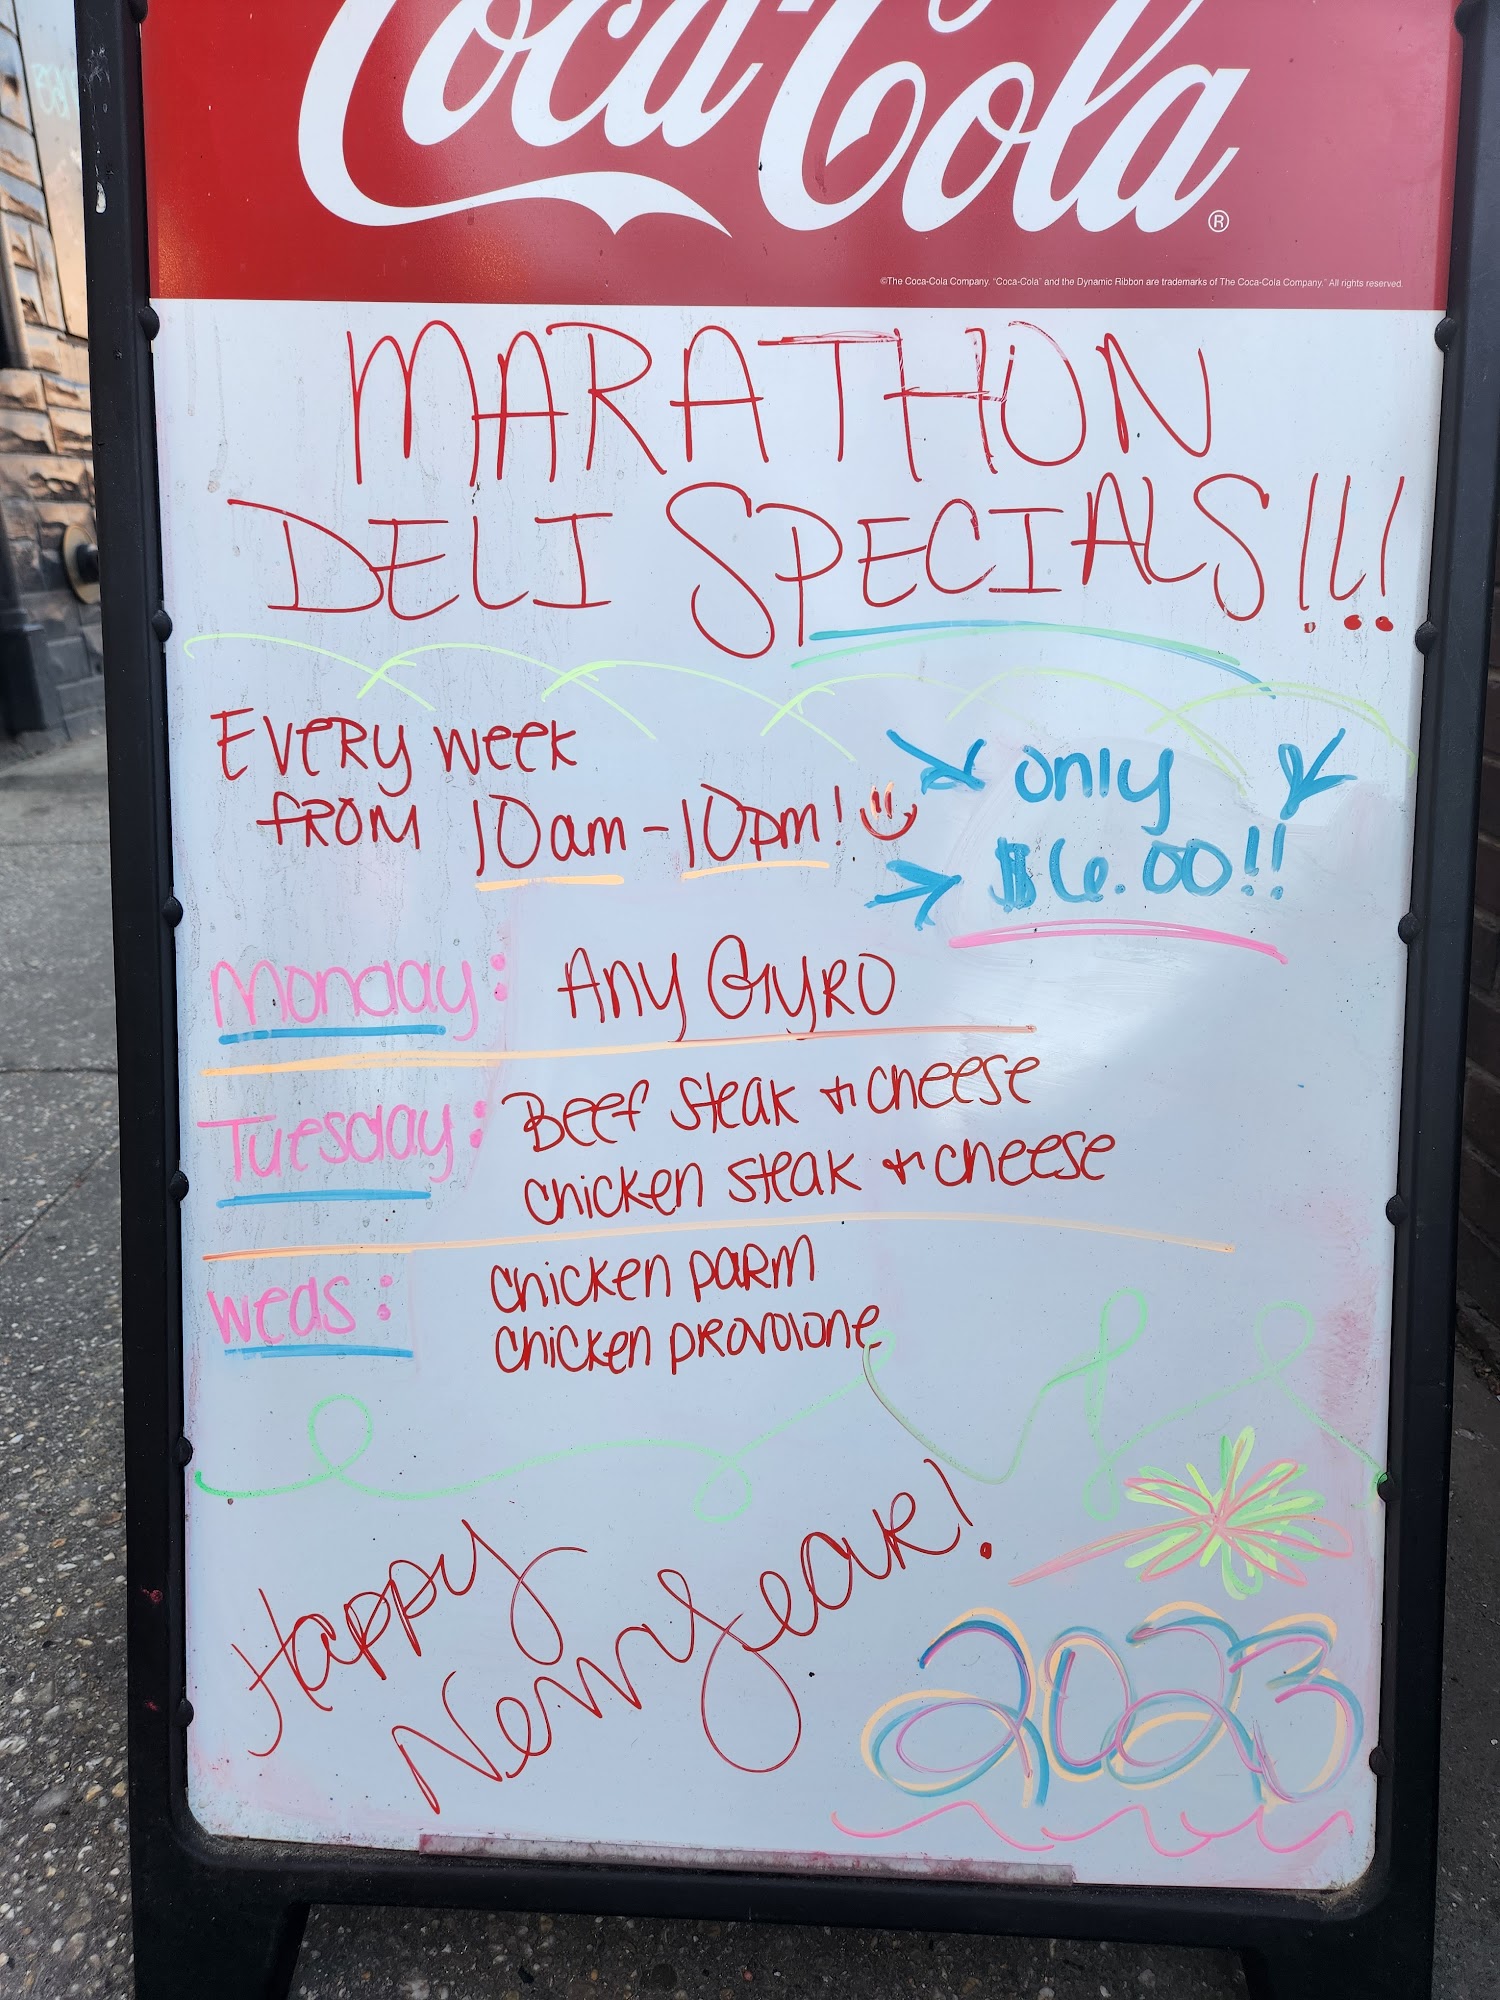 Coca-Cola®
©The Coca-Cola Company. "Coca-Cola" and the Dynamic Ribbon are trademarks of The Coca-Cola Company." All rights reserved.
MARATHON
DELI SPECIALS!!!
Every week
from 10am-10pm!
only
$6.00!!
Monday: Any Gyro
Tuesday: Beef steak + cheese
chicken steak + cheese
weds: chicken parm
chicken provolone
Happy
New Year!
2023